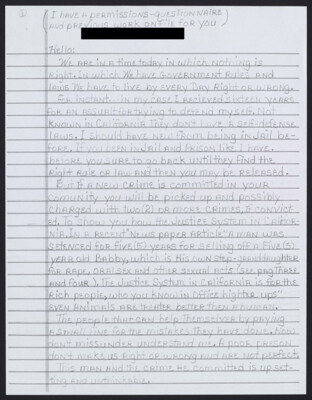 ①
(I have a permissions-questionnaire
and previous work on file for you)
Hello:
We are in a time today in which nothing is
right. In which we have government rules and
laws we have to live by every day right or wrong.
For instant. In my case I recieved sixteen years
for an assault for trying to defend myself. Not
known in California they don't have a self-defense
laws. I should have known from being in Jail be-
fore. If you been in Jail and Prison like I have
before you sure to go back until they find the
right rule or law and then you may be released.
But if a new crime is committed in your
comunity you will be picked up and possibly
charged with two (2) or more crimes, if convict-
ed. To "show you how the Justice System in Califor-
nia. In a recent" news paper article" a man was
setenced for five (5) years for selling off a five (5)
year old babby, which is his own step-granddaughter
for rape, oral sex and other sexual acts (see pag three
and four). The Justice System in California is for the
rich people, who you know in office higher ups"
even animals are treater better then a human.
The people that can help themselver by paying
a small fine for the mistakes they have done. Now
don't missunder understand me. A poor person
don't make us right or wrong and are not perfect.
This man and the crime he committed is up set-
ting and unthinkable.